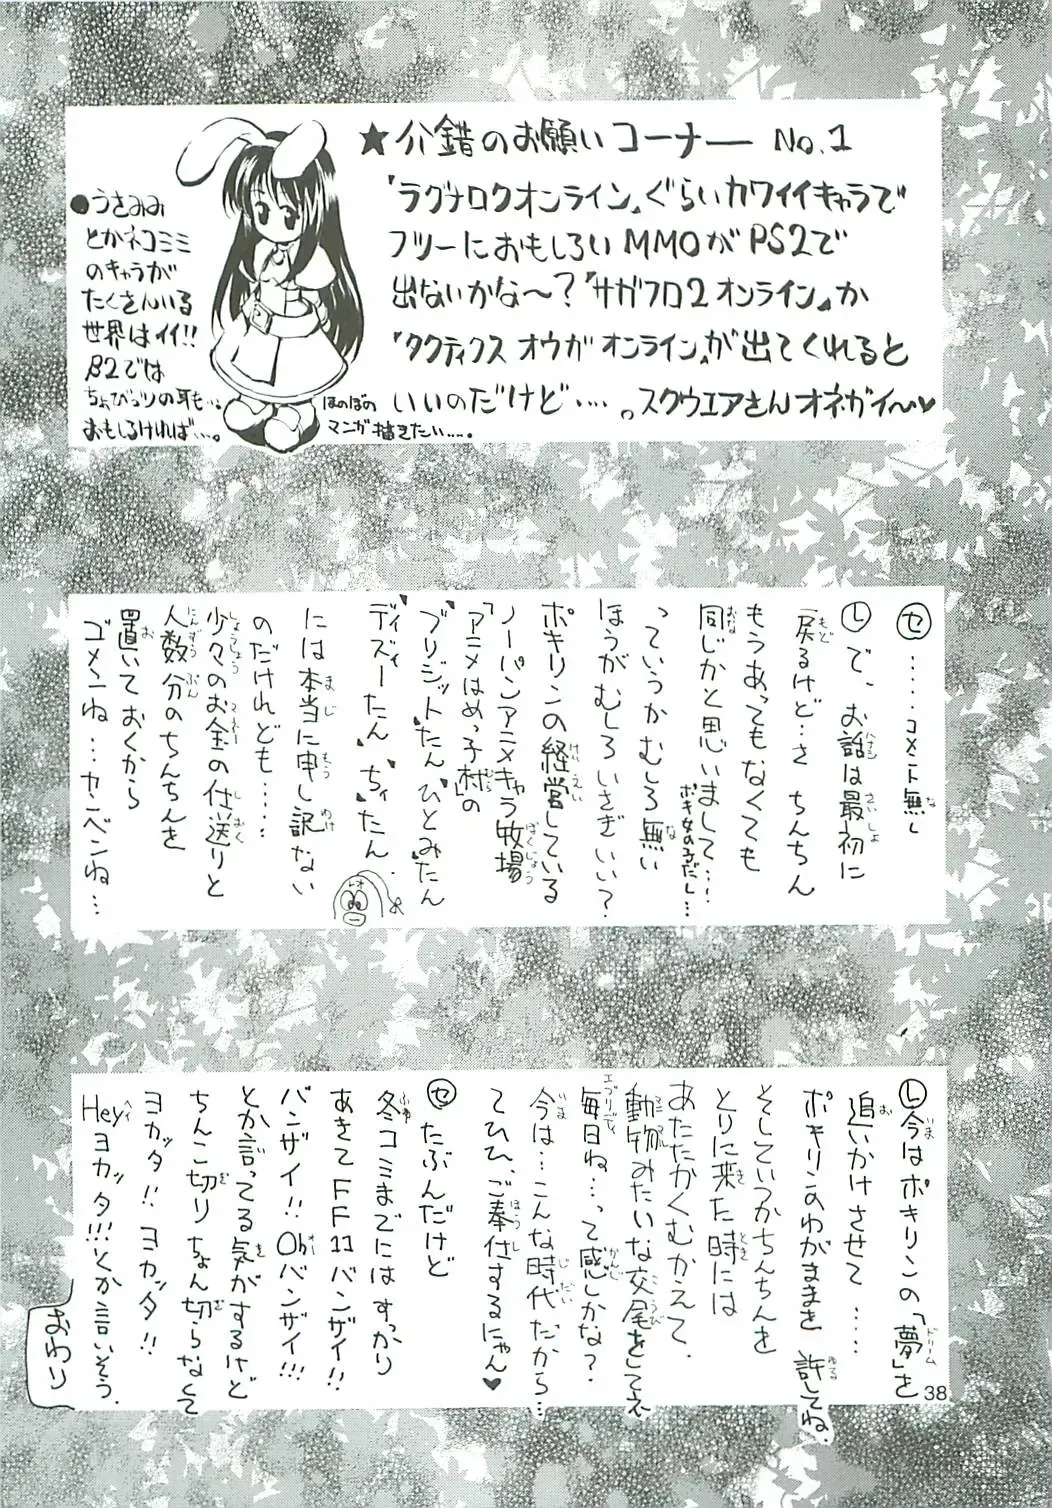 ★介錯のお願いコーナー No.1
『ラグナロクオンライン』ぐらいカワイイキャラで
フツーにおもしろいMMOがPS2で
出ないかな〜?『サガフロ2オンライン』か
『タクティクスオウガオンライン』が出てくれると
いいのだけど‥‥。スクウエアさんオネガイ〜♥
●うさみみ
とかネコミミ
のキャラが
たくさんいる
世界はイイ!!
β2では
ちょびっツの耳も…。
おもしろければ…。
ほのぼの
マンガ描きたい‥‥。
㋝‥‥‥コメント無し
㋹で、お話は最初に
戻るけど…さ ちんちん
もうあってもなくても
同じかと思いまして…
ボキ女の子だし…
っていうかむしろ無い
ほうがむしろいさぎいい?
ポキリンの経営している
ノーパンアニメキャラ牧場
「アニメはめっ子村」の
"ブリジット"たん"ひとみ"たん
"ディズィー"たん"ちぃ"たん
には本当に申し訳ない
のだけれども‥‥‥
少々のお金の仕送りと
人数分のちんちんを
置いておくから
ゴメンね…カンベンね…
㋹今はポキリンの「夢」を
追いかけさせて‥‥‥
ポキリンのわがままを 許してね。
そしていつかちんちんを
とりに来た時には
あたたかくむかえて、
動物みたいな交尾をしてえ
毎日ね…って感じかな?
今は…こんな時代だから…
てひひ、ご奉仕するにゃん♥
㋝たぶんだけど
冬コミまでにはすっかり
あきてFF11バンザイ!!
バンザイ!!Ohバンザイ!!!
とか言ってる気がするけど
ちんこ切りちょん切らなくて
ヨカッタ!!ヨカッタ!!
Heyヨカッタ!!!とか言いそう。
おわり
38